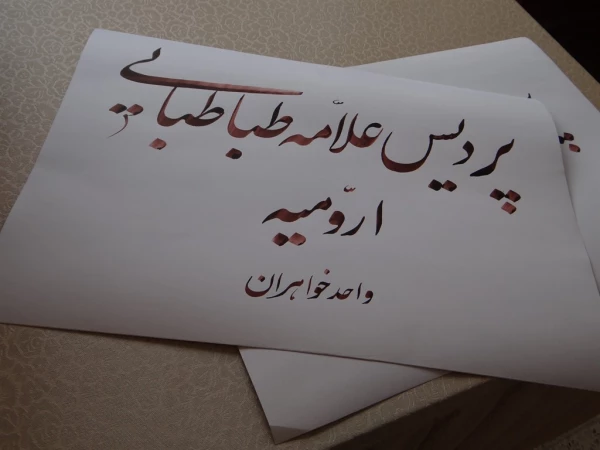 پردیس علاّمه طباطبایی
ارّومیه
واحد خواهران